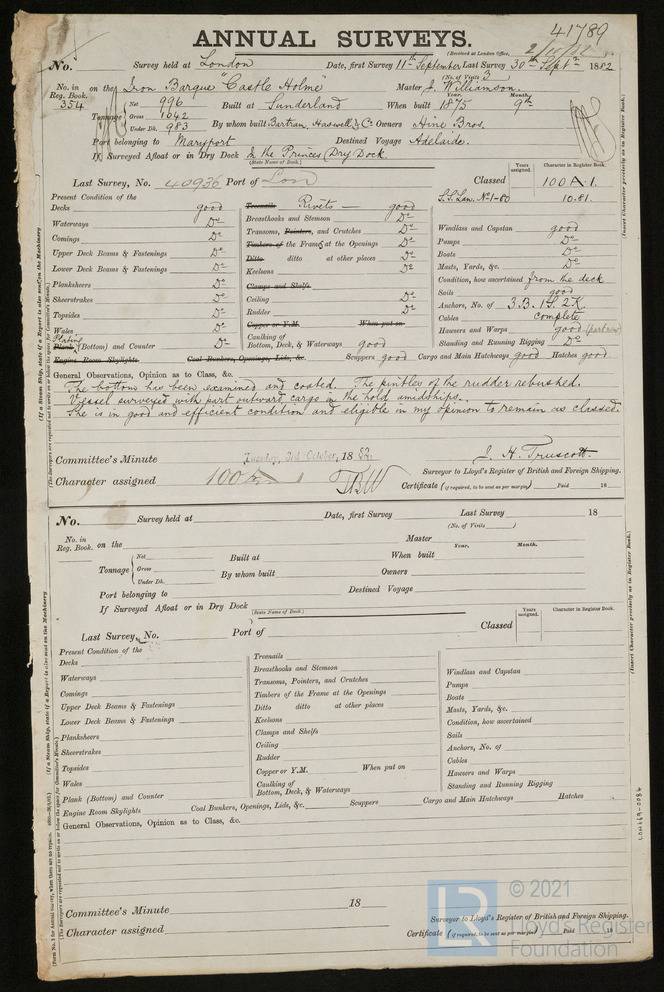 41789
ANNUAL SURVEYS.
(Received at London Office,
No. Survey held at London Date, first Survey 11th September Last Survey 30th Septr 1882
(No. of Visits 3)
No. in Reg. Book. 354 on the Iron Barque "Castle Holme" Master J. Williamson.
Tonnage Net 996 Built at Sunderland When built Year. 1875 Month. 9th
Gross 1042
Under Dk. 983 By whom built Bartram, Haswell & Co Owners Hine Bros.
Port belonging to Maryport Destined Voyage Adelaide.
If Surveyed Afloat or in Dry Dock In the Princes Dry Dock.
(State Name of Dock.)
Last Survey, No. 40936 Port of Lon Classed Years assigned. Character in Register Book. 100 A 1.
S.S. Lon. No 1-80 10.81.
Present Condition of the
Decks good
Waterways Do
Comings Do
Upper Deck Beams & Fastenings Do
Lower Deck Beams & Fastenings Do
Planksheers Do
Sheerstrakes Do
Topsides Do
Wales Do
Plating
Plank (Bottom) and Counter Do
Engine Room Skylights Coal Bunkers, Openings, Lids, &c.
Treenails Rivets — good
Breasthooks and Stemson Do
Transoms, Pointers, and Crutches Do
Timbers of the Frame at the Openings Do
Ditto ditto at other places Do
Keelsons Do
Clamps and Shelfs
Ceiling Do
Rudder Do
Copper or Y.M. When put on
Caulking of Bottom, Deck, & Waterways good
Scuppers good Cargo and Main Hatchways good Hatches good
Windlass and Capstan good
Pumps Do
Boats Do
Masts, Yards, &c. Do
Condition, how ascertained from the deck
Sails good
Anchors, No. of 3.B. 1S. 2K.
Cables complete
Hawsers and Warps good
Standing and Running Rigging Do
General Observations, Opinion as to Class, &c.
The bottom has been examined and coated. The pintles of the rudder rebushed.
Vessel surveyed with part outward cargo in the hold amidships.
She is in good and efficient condition and eligible in my opinion to remain as classed.
Committee's Minute Tuesday, 3rd October, 1882.
J. H. Truscott
Surveyor to Lloyd's Register of British and Foreign Shipping.
Character assigned 100 A 1
Certificate (if required, to be sent as per margin) Paid 18
No. Survey held at Date, first Survey Last Survey 18
(No. of Visits )
No. in Reg. Book. on the Master
Tonnage Net Built at When built Year. Month.
Gross
Under Dk. By whom built Owners
Port belonging to Destined Voyage
If Surveyed Afloat or in Dry Dock
(State Name of Dock.)
Last Survey, No. Port of Classed Years assigned. Character in Register Book.
Present Condition of the
Decks
Waterways
Comings
Upper Deck Beams & Fastenings
Lower Deck Beams & Fastenings
Planksheers
Sheerstrakes
Topsides
Wales
Plank (Bottom) and Counter
Engine Room Skylights Coal Bunkers, Openings, Lids, &c.
Treenails
Breasthooks and Stemson
Transoms, Pointers, and Crutches
Timbers of the Frame at the Openings
Ditto ditto at other places
Keelsons
Clamps and Shelfs
Ceiling
Rudder
Copper or Y.M. When put on
Caulking of Bottom, Deck, & Waterways
Scuppers Cargo and Main Hatchways Hatches
Windlass and Capstan
Pumps
Boats
Masts, Yards, &c.
Condition, how ascertained
Sails
Anchors, No. of
Cables
Hawsers and Warps
Standing and Running Rigging
General Observations, Opinion as to Class, &c.
Committee's Minute 18
Surveyor to Lloyd's Register of British and Foreign Shipping.
Character assigned
Certificate (if required, to be sent as per margin) Paid 18
(If a Steam Ship, state if a Report is also sent on the Machinery
(Insert Character precisely as in Register Book.)
LR © 2021
Lloyd's Register
Foundation